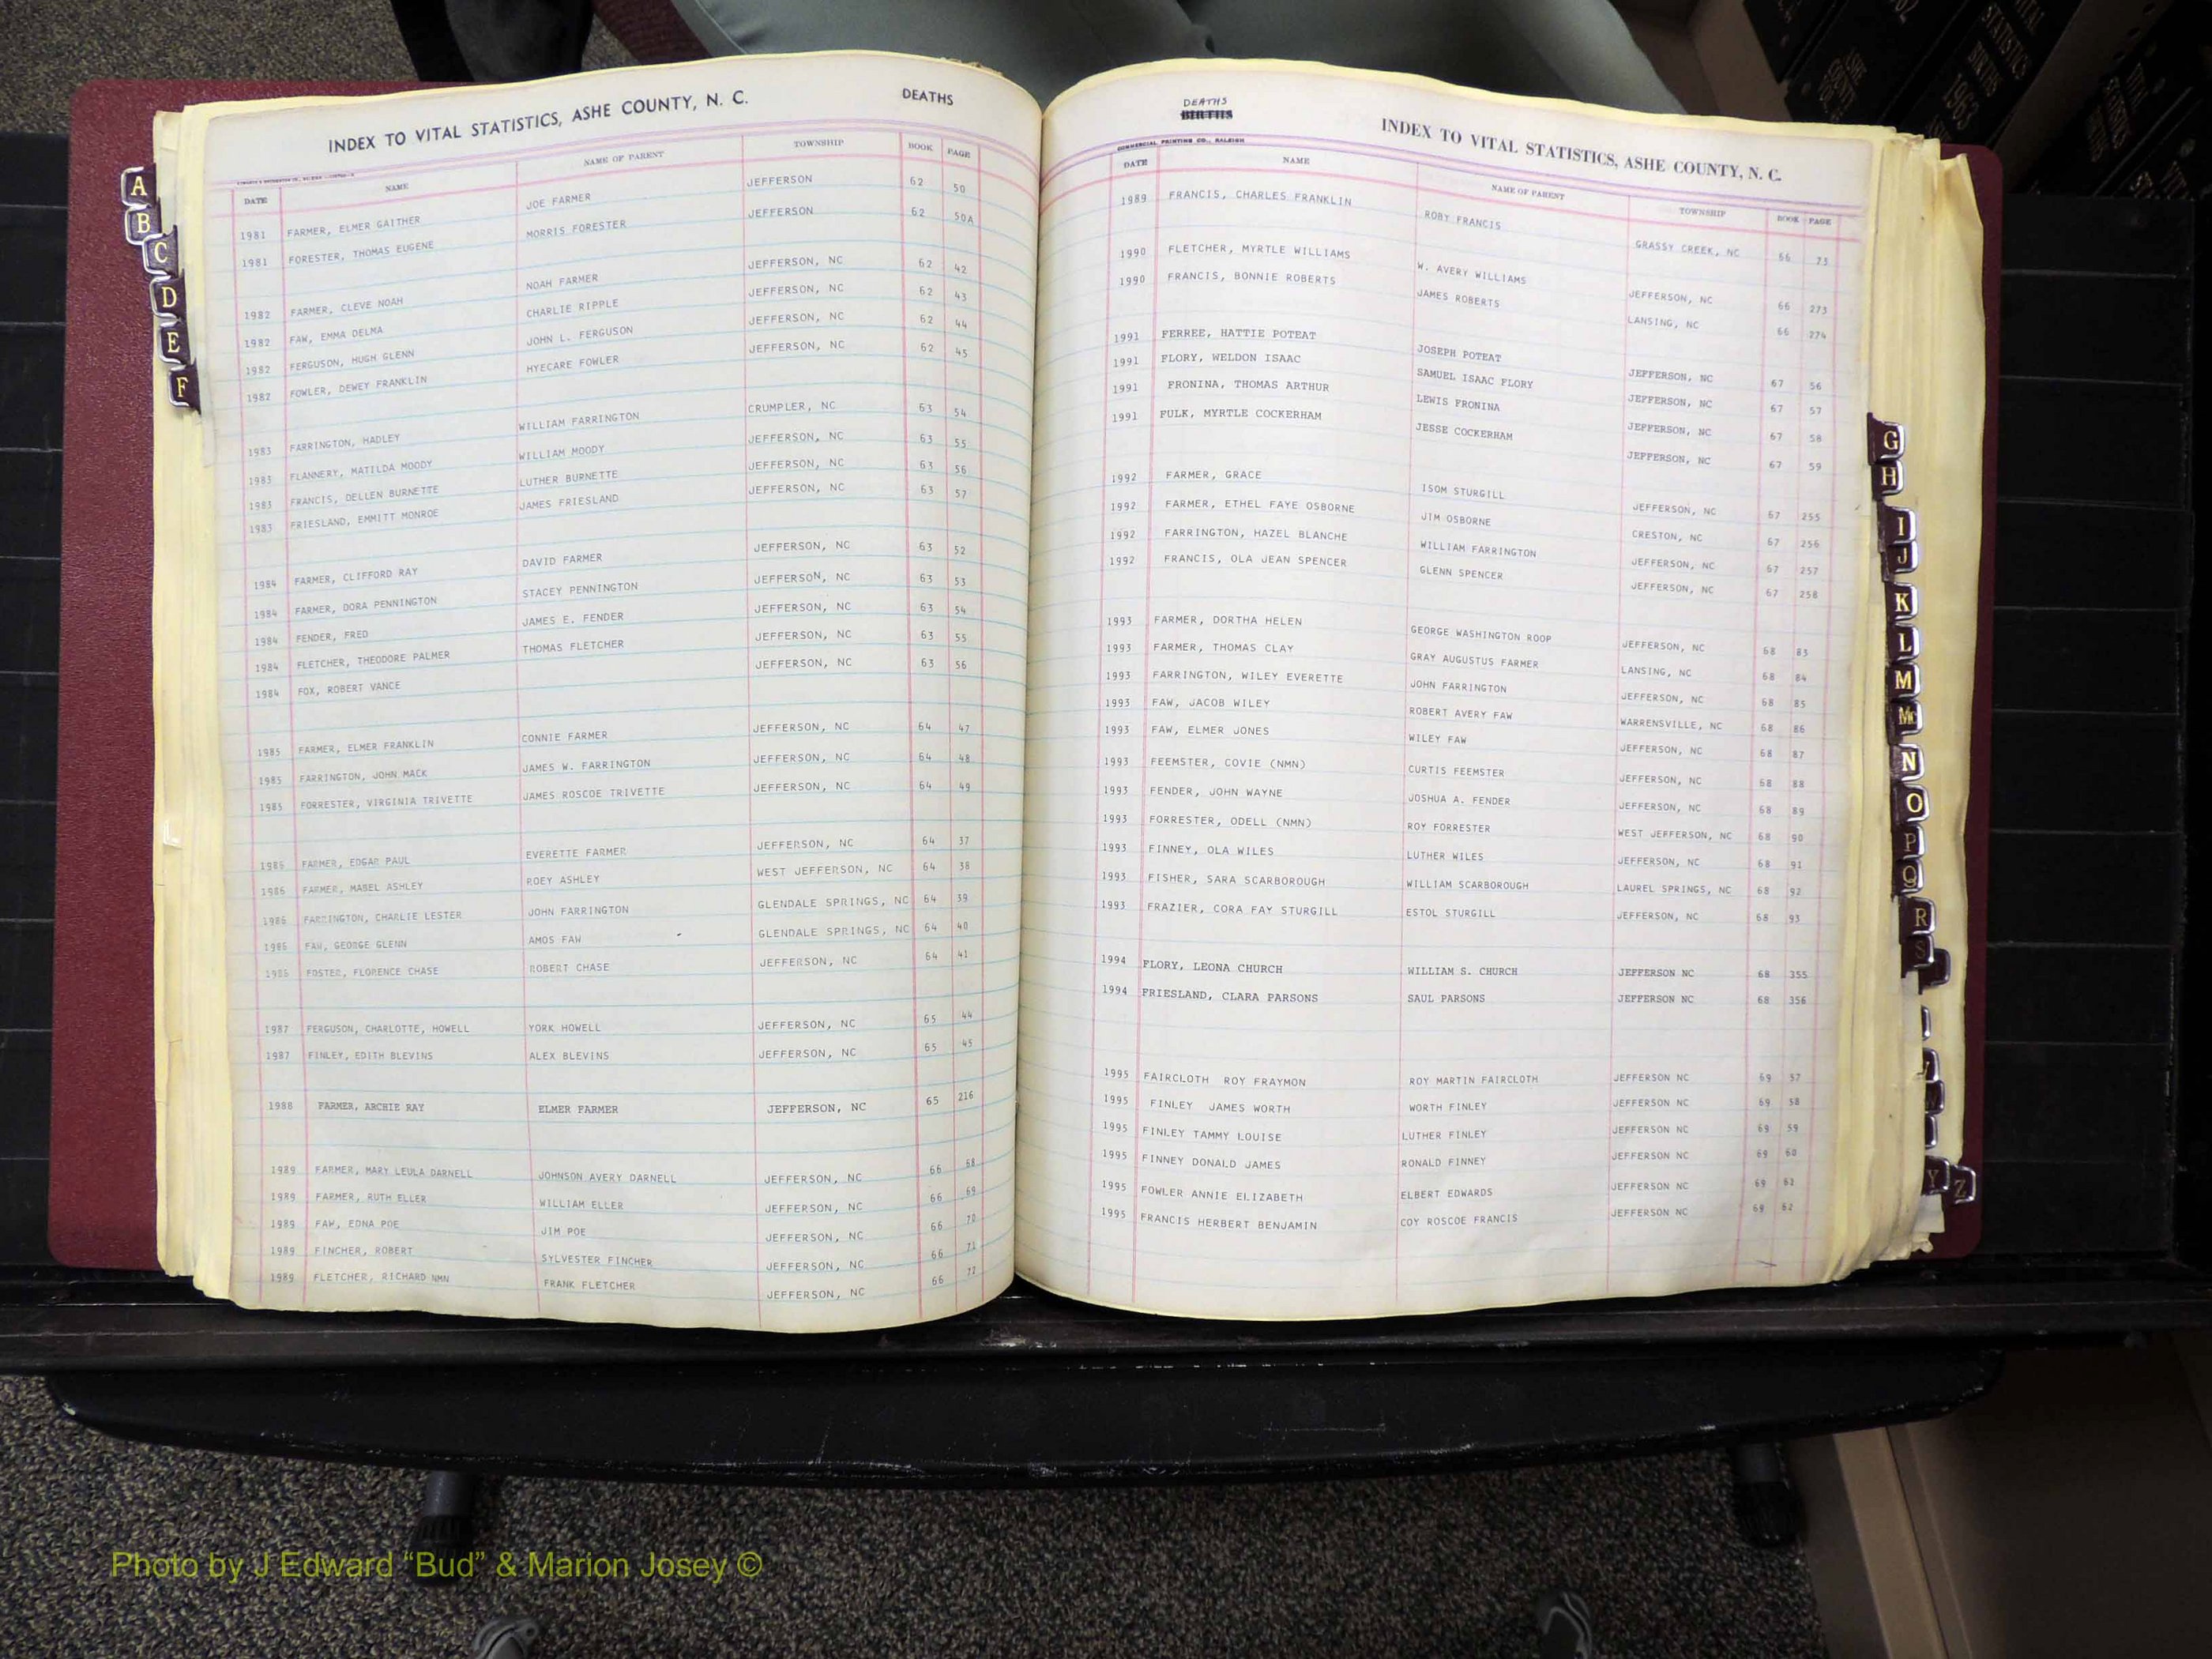 INDEX TO VITAL STATISTICS, ASHE COUNTY, N. C. DEATHS
DATE NAME NAME OF PARENT TOWNSHIP BOOK PAGE
1981 FARMER, ELMER GAITHER JOE FARMER JEFFERSON 62 50
1981 FORESTER, THOMAS EUGENE MORRIS FORESTER JEFFERSON 62 50A
1982 FARMER, CLEVE NOAH NOAH FARMER JEFFERSON, NC 62 42
1982 FAW, EMMA DELMA CHARLIE RIPPLE JEFFERSON, NC 62 43
1982 FERGUSON, HUGH GLENN JOHN L. FERGUSON JEFFERSON, NC 62 44
1982 FOWLER, DEWEY FRANKLIN HYECARE FOWLER JEFFERSON, NC 62 45
1983 FARRINGTON, HADLEY WILLIAM FARRINGTON CRUMPLER, NC 63 54
1983 FLANNERY, MATILDA MOODY WILLIAM MOODY JEFFERSON, NC 63 55
1983 FRANCIS, DELLEN BURNETTE LUTHER BURNETTE JEFFERSON, NC 63 56
1983 FRIESLAND, EMMITT MONROE JAMES FRIESLAND JEFFERSON, NC 63 57
1984 FARMER, CLIFFORD RAY DAVID FARMER JEFFERSON, NC 63 52
1984 FARMER, DORA PENNINGTON STACEY PENNINGTON JEFFERSON, NC 63 53
1984 FENDER, FRED JAMES E. FENDER JEFFERSON, NC 63 54
1984 FLETCHER, THEODORE PALMER THOMAS FLETCHER JEFFERSON, NC 63 55
1984 FOX, ROBERT VANCE JEFFERSON, NC 63 56
1985 FARMER, ELMER FRANKLIN CONNIE FARMER JEFFERSON, NC 64 47
1985 FARRINGTON, JOHN MACK JAMES W. FARRINGTON JEFFERSON, NC 64 48
1985 FORRESTER, VIRGINIA TRIVETTE JAMES ROSCOE TRIVETTE JEFFERSON, NC 64 49
1986 FARMER, EDGAR PAUL EVERETTE FARMER JEFFERSON, NC 64 37
1986 FARMER, MABEL ASHLEY ROEY ASHLEY WEST JEFFERSON, NC 64 38
1986 FARRINGTON, CHARLIE LESTER JOHN FARRINGTON GLENDALE SPRINGS, NC 64 39
1986 FAW, GEORGE GLENN AMOS FAW GLENDALE SPRINGS, NC 64 40
1986 FOSTER, FLORENCE CHASE ROBERT CHASE JEFFERSON, NC 64 41
1987 FERGUSON, CHARLOTTE, HOWELL YORK HOWELL JEFFERSON, NC 65 44
1987 FINLEY, EDITH BLEVINS ALEX BLEVINS JEFFERSON, NC 65 45
1988 FARMER, ARCHIE RAY ELMER FARMER JEFFERSON, NC 65 216
1989 FARMER, MARY LEULA DARNELL JOHNSON AVERY DARNELL JEFFERSON, NC 66 68
1989 FARMER, RUTH ELLER WILLIAM ELLER JEFFERSON, NC 66 69
1989 FAW, EDNA POE JIM POE JEFFERSON, NC 66 70
1989 FINCHER, ROBERT SYLVESTER FINCHER JEFFERSON, NC 66 71
1989 FLETCHER, RICHARD NMN FRANK FLETCHER JEFFERSON, NC 66 72
A
B
C
D
E
F
DEATHS
BIRTHS
INDEX TO VITAL STATISTICS, ASHE COUNTY, N. C.
COMMERCIAL PRINTING CO., RALEIGH
DATE NAME NAME OF PARENT TOWNSHIP BOOK PAGE
1989 FRANCIS, CHARLES FRANKLIN ROBY FRANCIS GRASSY CREEK, NC 66 73
1990 FLETCHER, MYRTLE WILLIAMS W. AVERY WILLIAMS JEFFERSON, NC 66 273
1990 FRANCIS, BONNIE ROBERTS JAMES ROBERTS LANSING, NC 66 274
1991 FERREE, HATTIE POTEAT JOSEPH POTEAT JEFFERSON, NC 67 56
1991 FLORY, WELDON ISAAC SAMUEL ISAAC FLORY JEFFERSON, NC 67 57
1991 FRONINA, THOMAS ARTHUR LEWIS FRONINA JEFFERSON, NC 67 58
1991 FULK, MYRTLE COCKERHAM JESSE COCKERHAM JEFFERSON, NC 67 59
1992 FARMER, GRACE ISOM STURGILL JEFFERSON, NC 67 255
1992 FARMER, ETHEL FAYE OSBORNE JIM OSBORNE CRESTON, NC 67 256
1992 FARRINGTON, HAZEL BLANCHE WILLIAM FARRINGTON JEFFERSON, NC 67 257
1992 FRANCIS, OLA JEAN SPENCER GLENN SPENCER JEFFERSON, NC 67 258
1993 FARMER, DORTHA HELEN GEORGE WASHINGTON ROOP JEFFERSON, NC 68 83
1993 FARMER, THOMAS CLAY GRAY AUGUSTUS FARMER LANSING, NC 68 84
1993 FARRINGTON, WILEY EVERETTE JOHN FARRINGTON JEFFERSON, NC 68 85
1993 FAW, JACOB WILEY ROBERT AVERY FAW WARRENSVILLE, NC 68 86
1993 FAW, ELMER JONES WILEY FAW JEFFERSON, NC 68 87
1993 FEEMSTER, COVIE (NMN) CURTIS FEEMSTER JEFFERSON, NC 68 88
1993 FENDER, JOHN WAYNE JOSHUA A. FENDER JEFFERSON, NC 68 89
1993 FORRESTER, ODELL (NMN) ROY FORRESTER WEST JEFFERSON, NC 68 90
1993 FINNEY, OLA WILES LUTHER WILES JEFFERSON, NC 68 91
1993 FISHER, SARA SCARBOROUGH WILLIAM SCARBOROUGH LAUREL SPRINGS, NC 68 92
1993 FRAZIER, CORA FAY STURGILL ESTOL STURGILL JEFFERSON, NC 68 93
1994 FLORY, LEONA CHURCH WILLIAM S. CHURCH JEFFERSON NC 68 355
1994 FRIESLAND, CLARA PARSONS SAUL PARSONS JEFFERSON NC 68 356
1995 FAIRCLOTH ROY FRAYMON ROY MARTIN FAIRCLOTH JEFFERSON NC 69 57
1995 FINLEY JAMES WORTH WORTH FINLEY JEFFERSON NC 69 58
1995 FINLEY TAMMY LOUISE LUTHER FINLEY JEFFERSON NC 69 59
1995 FINNEY DONALD JAMES RONALD FINNEY JEFFERSON NC 69 60
1995 FOWLER ANNIE ELIZABETH ELBERT EDWARDS JEFFERSON NC 69 61
1995 FRANCIS HERBERT BENJAMIN COY ROSCOE FRANCIS JEFFERSON NC 69 62
G
H
I
J
K
L
M
Mc
N
O
P
Q
R
S
Y
Z
VITAL STATISTICS BIRTHS 1963
Photo by J Edward “Bud” & Marion Josey ©